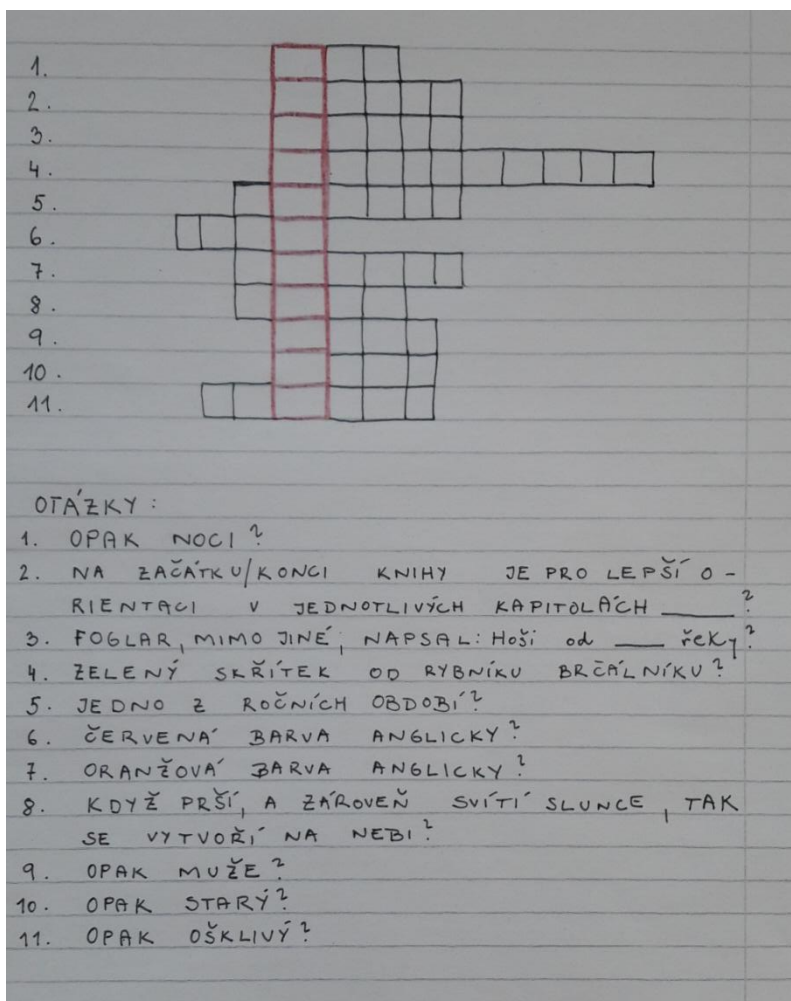 1.
2.
3.
4.
5.
6.
7.
8.
9.
10.
11.
OTÁZKY:
1. OPAK NOCI?
2. NA ZAČÁTKU/KONCI KNIHY JE PRO LEPŠÍ O-
RIENTACI V JEDNOTLIVÝCH KAPITOLÁCH _____?
3. FOGLAR, MIMO JINÉ, NAPSAL: Hoši od ___ řeky?
4. ZELENÝ SKŘÍTEK OD RYBNÍKU BRČÁLNÍKU?
5. JEDNO Z ROČNÍCH OBDOBÍ?
6. ČERVENÁ BARVA ANGLICKY?
7. ORANŽOVÁ BARVA ANGLICKY?
8. KDYŽ PRŠÍ, A ZÁROVEŇ SVÍTÍ SLUNCE, TAK
SE VYTVOŘÍ NA NEBI?
9. OPAK MUŽE?
10. OPAK STARÝ?
11. OPAK OŠKLIVÝ?